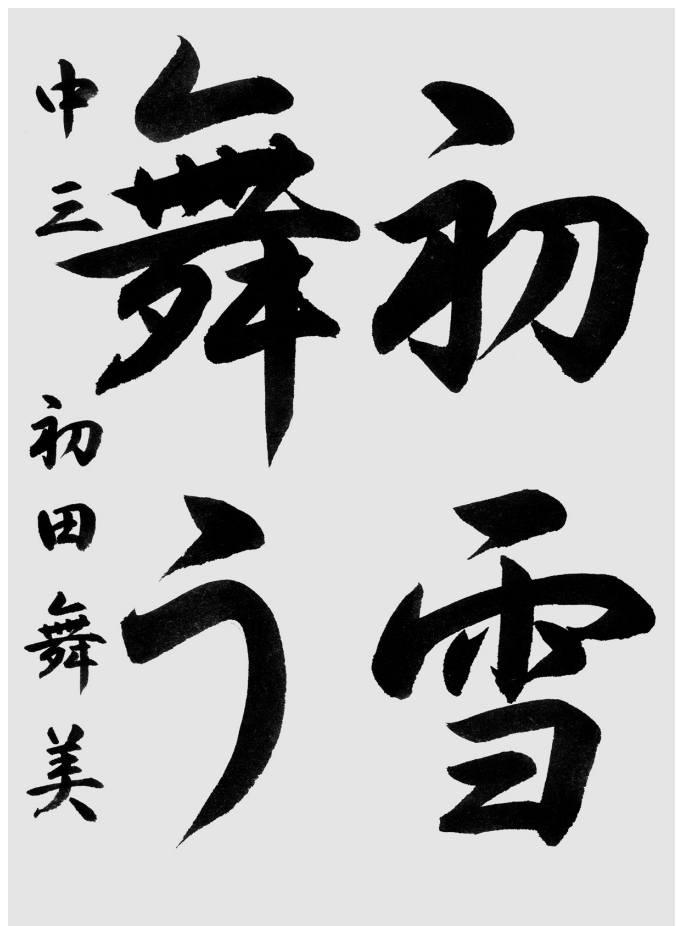 初雪
舞う
中三 初田舞美